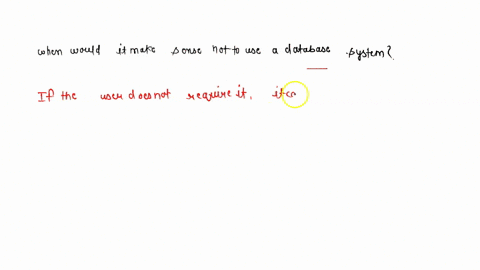 when would it make sense not to use a database system?
If the user does not require it, it ca